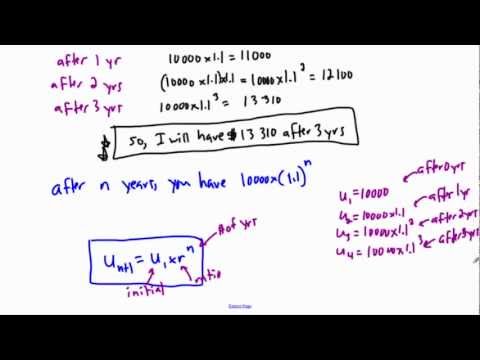 after 1 yr 10000x1.1 = 11000
after 2 yrs (10000x1.1)x1.1 = 10000x1.1² = 12100
after 3 yrs 10000x1.1³ = 13310
so, I will have $13 310 after 3 yrs
after n years, you have 10000x(1.1)ⁿ
u₁ = 10000 after 0 yrs
u₂ = 10000x1.1 after 1yr
u₃ = 10000x1.1² after 2yrs
u₄ = 10000x1.1³ after 3yrs
# of yrs
uₙ₊₁ = u₁ x rⁿ
initial ratio